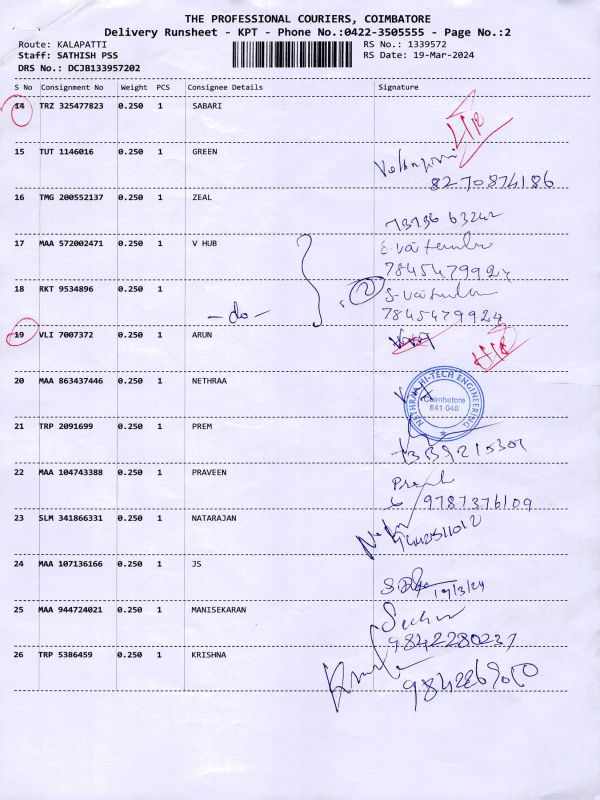 THE PROFESSIONAL COURIERS, COIMBATORE
Delivery Runsheet - KPT - Phone No.:0422-3505555 - Page No.:2
Route: KALAPATTI RS No.: 1339572
Staff: SATHISH PSS RS Date: 19-Mar-2024
DRS No.: DCJB133957202
S No Consignment No Weight PCS Consignee Details Signature
14 TRZ 325477823 0.250 1 SABARI
15 TUT 1146016 0.250 1 GREEN
8270874186
16 TMG 200552137 0.250 1 ZEAL
73736 63242
17 MAA 572002471 0.250 1 V HUB
7845479924
18 RKT 9534896 0.250 1 -do- 2
7845479924
19 VLI 7007372 0.250 1 ARUN
20 MAA 863437446 0.250 1 NETHRAA
NETHRAA HI-TECH ENGINEERING
Coimbatore
641 048
21 TRP 2091699 0.250 1 PREM
22 MAA 104743388 0.250 1 PRAVEEN
9787376109
23 SLM 341866331 0.250 1 NATARAJAN
24 MAA 107136166 0.250 1 JS
19/3/24
25 MAA 944724021 0.250 1 MANISEKARAN
9842280237
26 TRP 5386459 0.250 1 KRISHNA